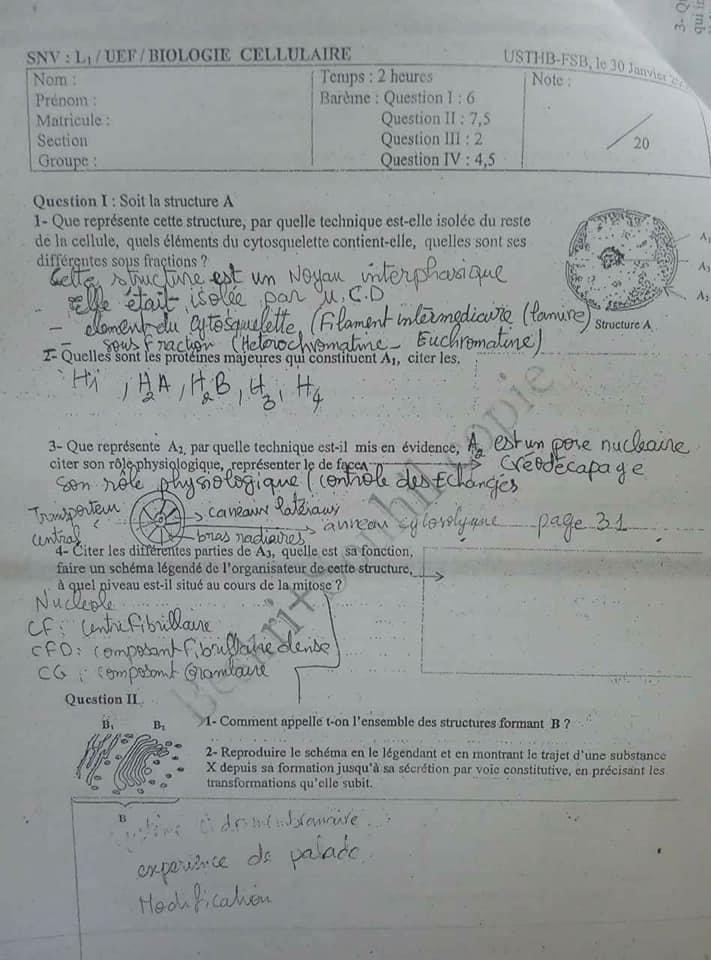 3- Q
qui in
SNV : L1 / UEF / BIOLOGIE CELLULAIRE
USTHB-FSB, le 30 Janvier
Nom :
Temps : 2 heures
Note :
Prénom :
Barème : Question I : 6
Matricule :
Question II : 7,5
Section
Question III : 2
20
Groupe :
Question IV : 4,5
Question I : Soit la structure A
1- Que représente cette structure, par quelle technique est-elle isolée du reste
de la cellule, quels éléments du cytosquelette contient-elle, quelles sont ses
différentes sous fractions ?
Cette structure est un Noyau interphasique
Elle était isolée par U.C.D
- element du Cytosquelette (Filament intermediaire (lamine)
- sous Fraction (Heterochromatine - Euchromatine)
Structure A
2- Quelles sont les protéines majeures qui constituent A1, citer les.
H1, H2A, H2B, H3, H4
3- Que représente A2, par quelle technique est-il mis en évidence,
A2 est un pore nucleaire
citer son rôle physiologique, représenter le de face
Créodécapage
Son rôle physiologique / controle des Echanges
Transporteur
central
caneaux latéraux
anneau cytosolyque
page 31
bras radiaires
4- Citer les différentes parties de A3, quelle est sa fonction,
faire un schéma légendé de l'organisateur de cette structure,
à quel niveau est-il situé au cours de la mitose ?
Nucleole
CF : Centre Fibrillaire
CFD : composant Fibrillaire dense
CG : composant Granulaire
Question II
B1
B2
1- Comment appelle t-on l'ensemble des structures formant B ?
2- Reproduire le schéma en le légendant et en montrant le trajet d'une substance
X depuis sa formation jusqu'à sa sécrétion par voie constitutive, en précisant les
transformations qu'elle subit.
B
experience de palade
Modification